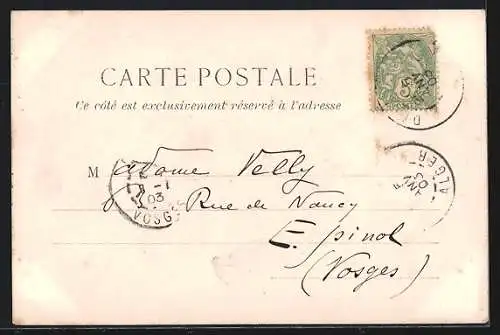 CARTE POSTALE
Ce côté est exclusivement réservé à l'adresse
Madame Velly
8 Rue de Nancy
Epinal
(Vosges)
ALGER
JANV
03
-1
03
VOSGES